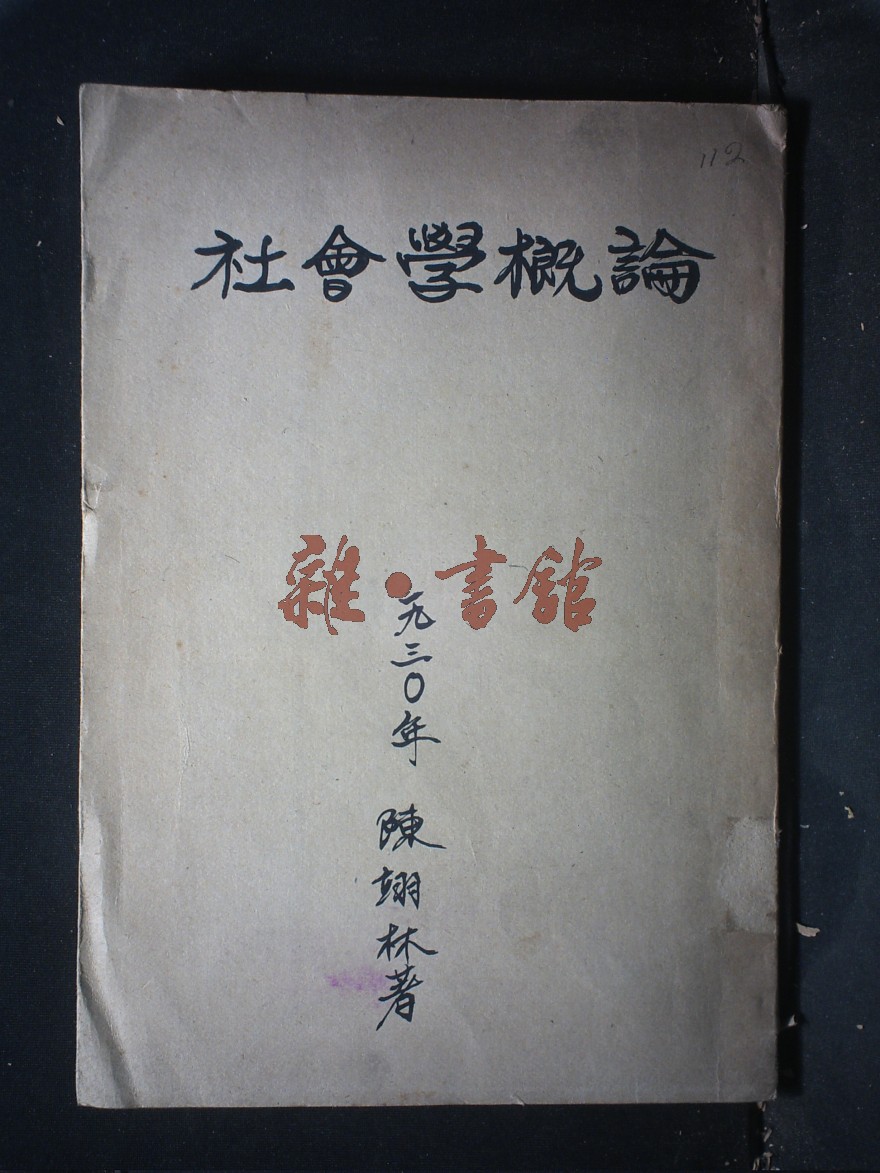 112
社會學概論
雜·書館
一九三〇年 陳翊林著